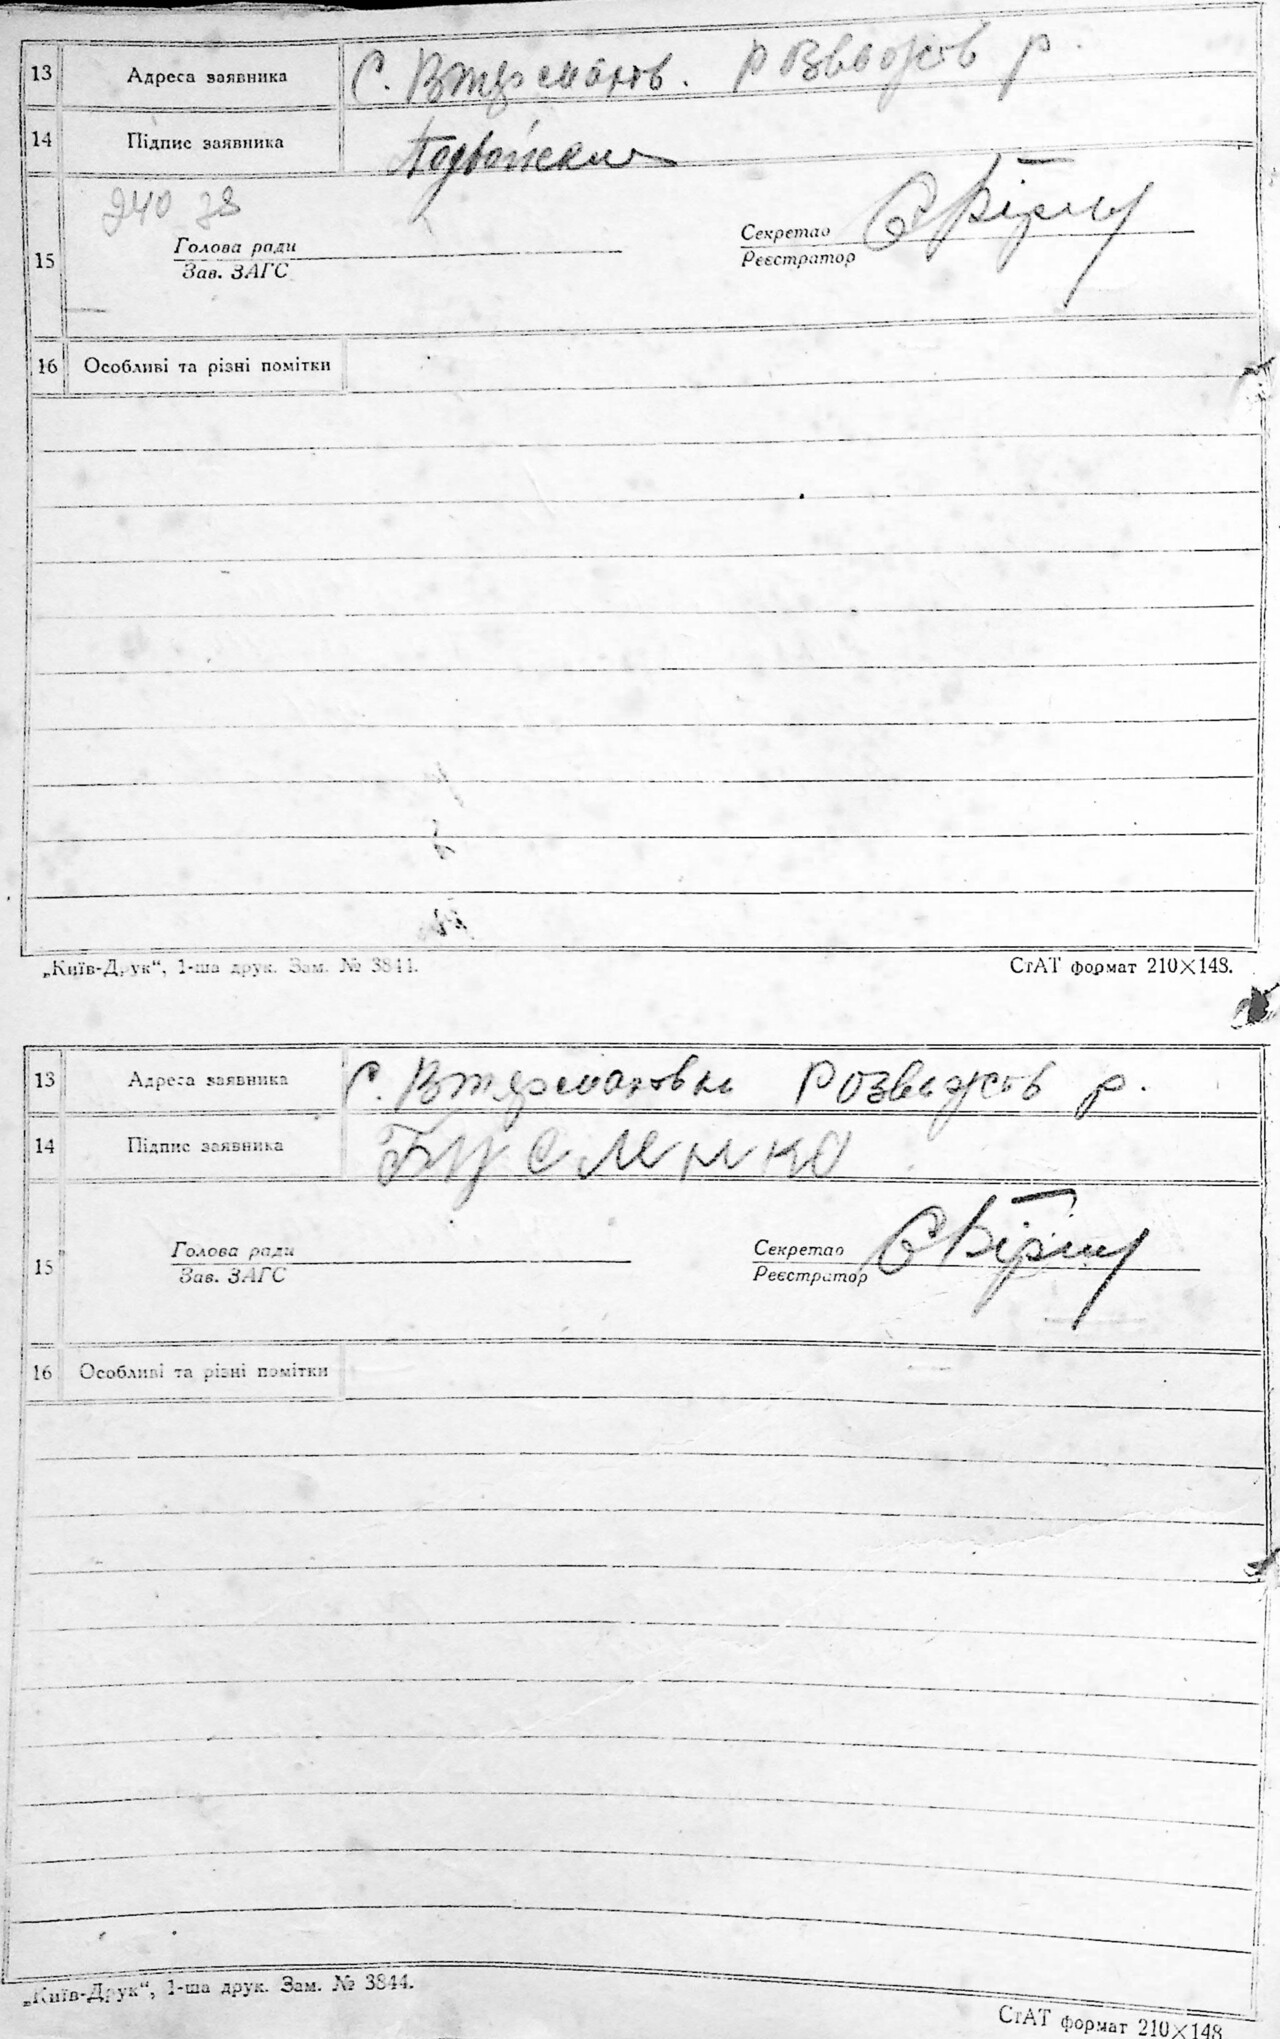 13 Адреса заявника С. Втерманов. Розважов р.
14 Підпис заявника
240 78
Голова ради Секретар
15
Зав. ЗАГС Реєстратор
16 Особливі та різні помітки
„Київ-Друк“, 1-ша друк. Зам. № 3844. СтАТ формат 210×148.
13 Адреса заявника С. Розважов р.
14 Підпис заявника
Голова ради Секретар
15
Зав. ЗАГС Реєстратор
16 Особливі та різні помітки
„Київ-Друк“, 1-ша друк. Зам. № 3844.
СтАТ формат 210×148